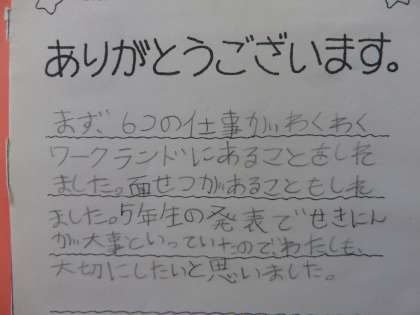 ありがとうございます。
まず、6つの仕事がわくわく
ワークランドにあることをしれ
ました。面せつがあることもしれ
ました。5年生の発表でせきにん
が大事といっていたので、わたしも、
大切にしたいと思いました。